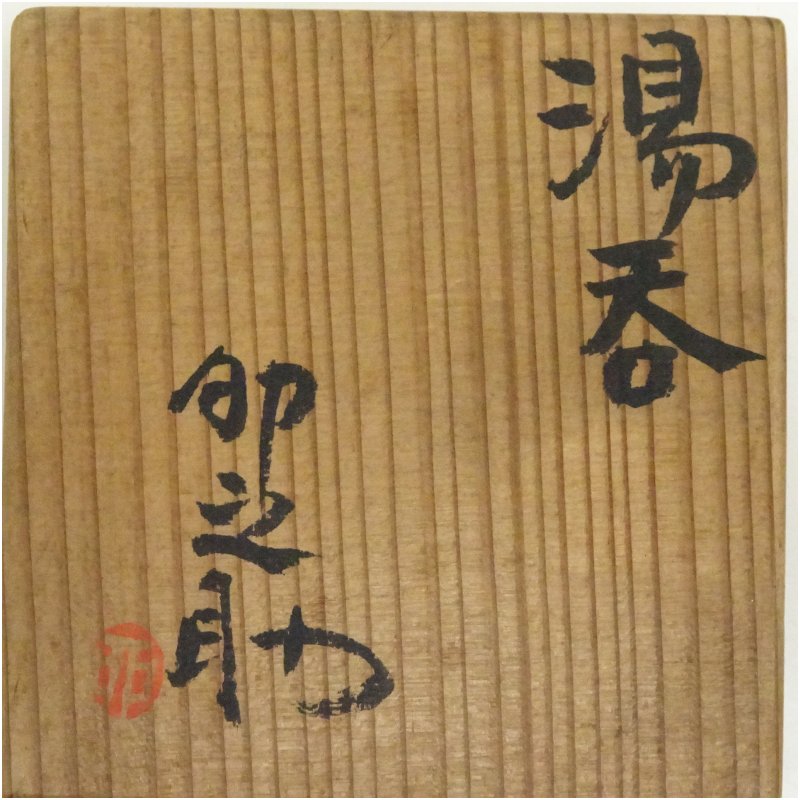 湯呑
卯之助